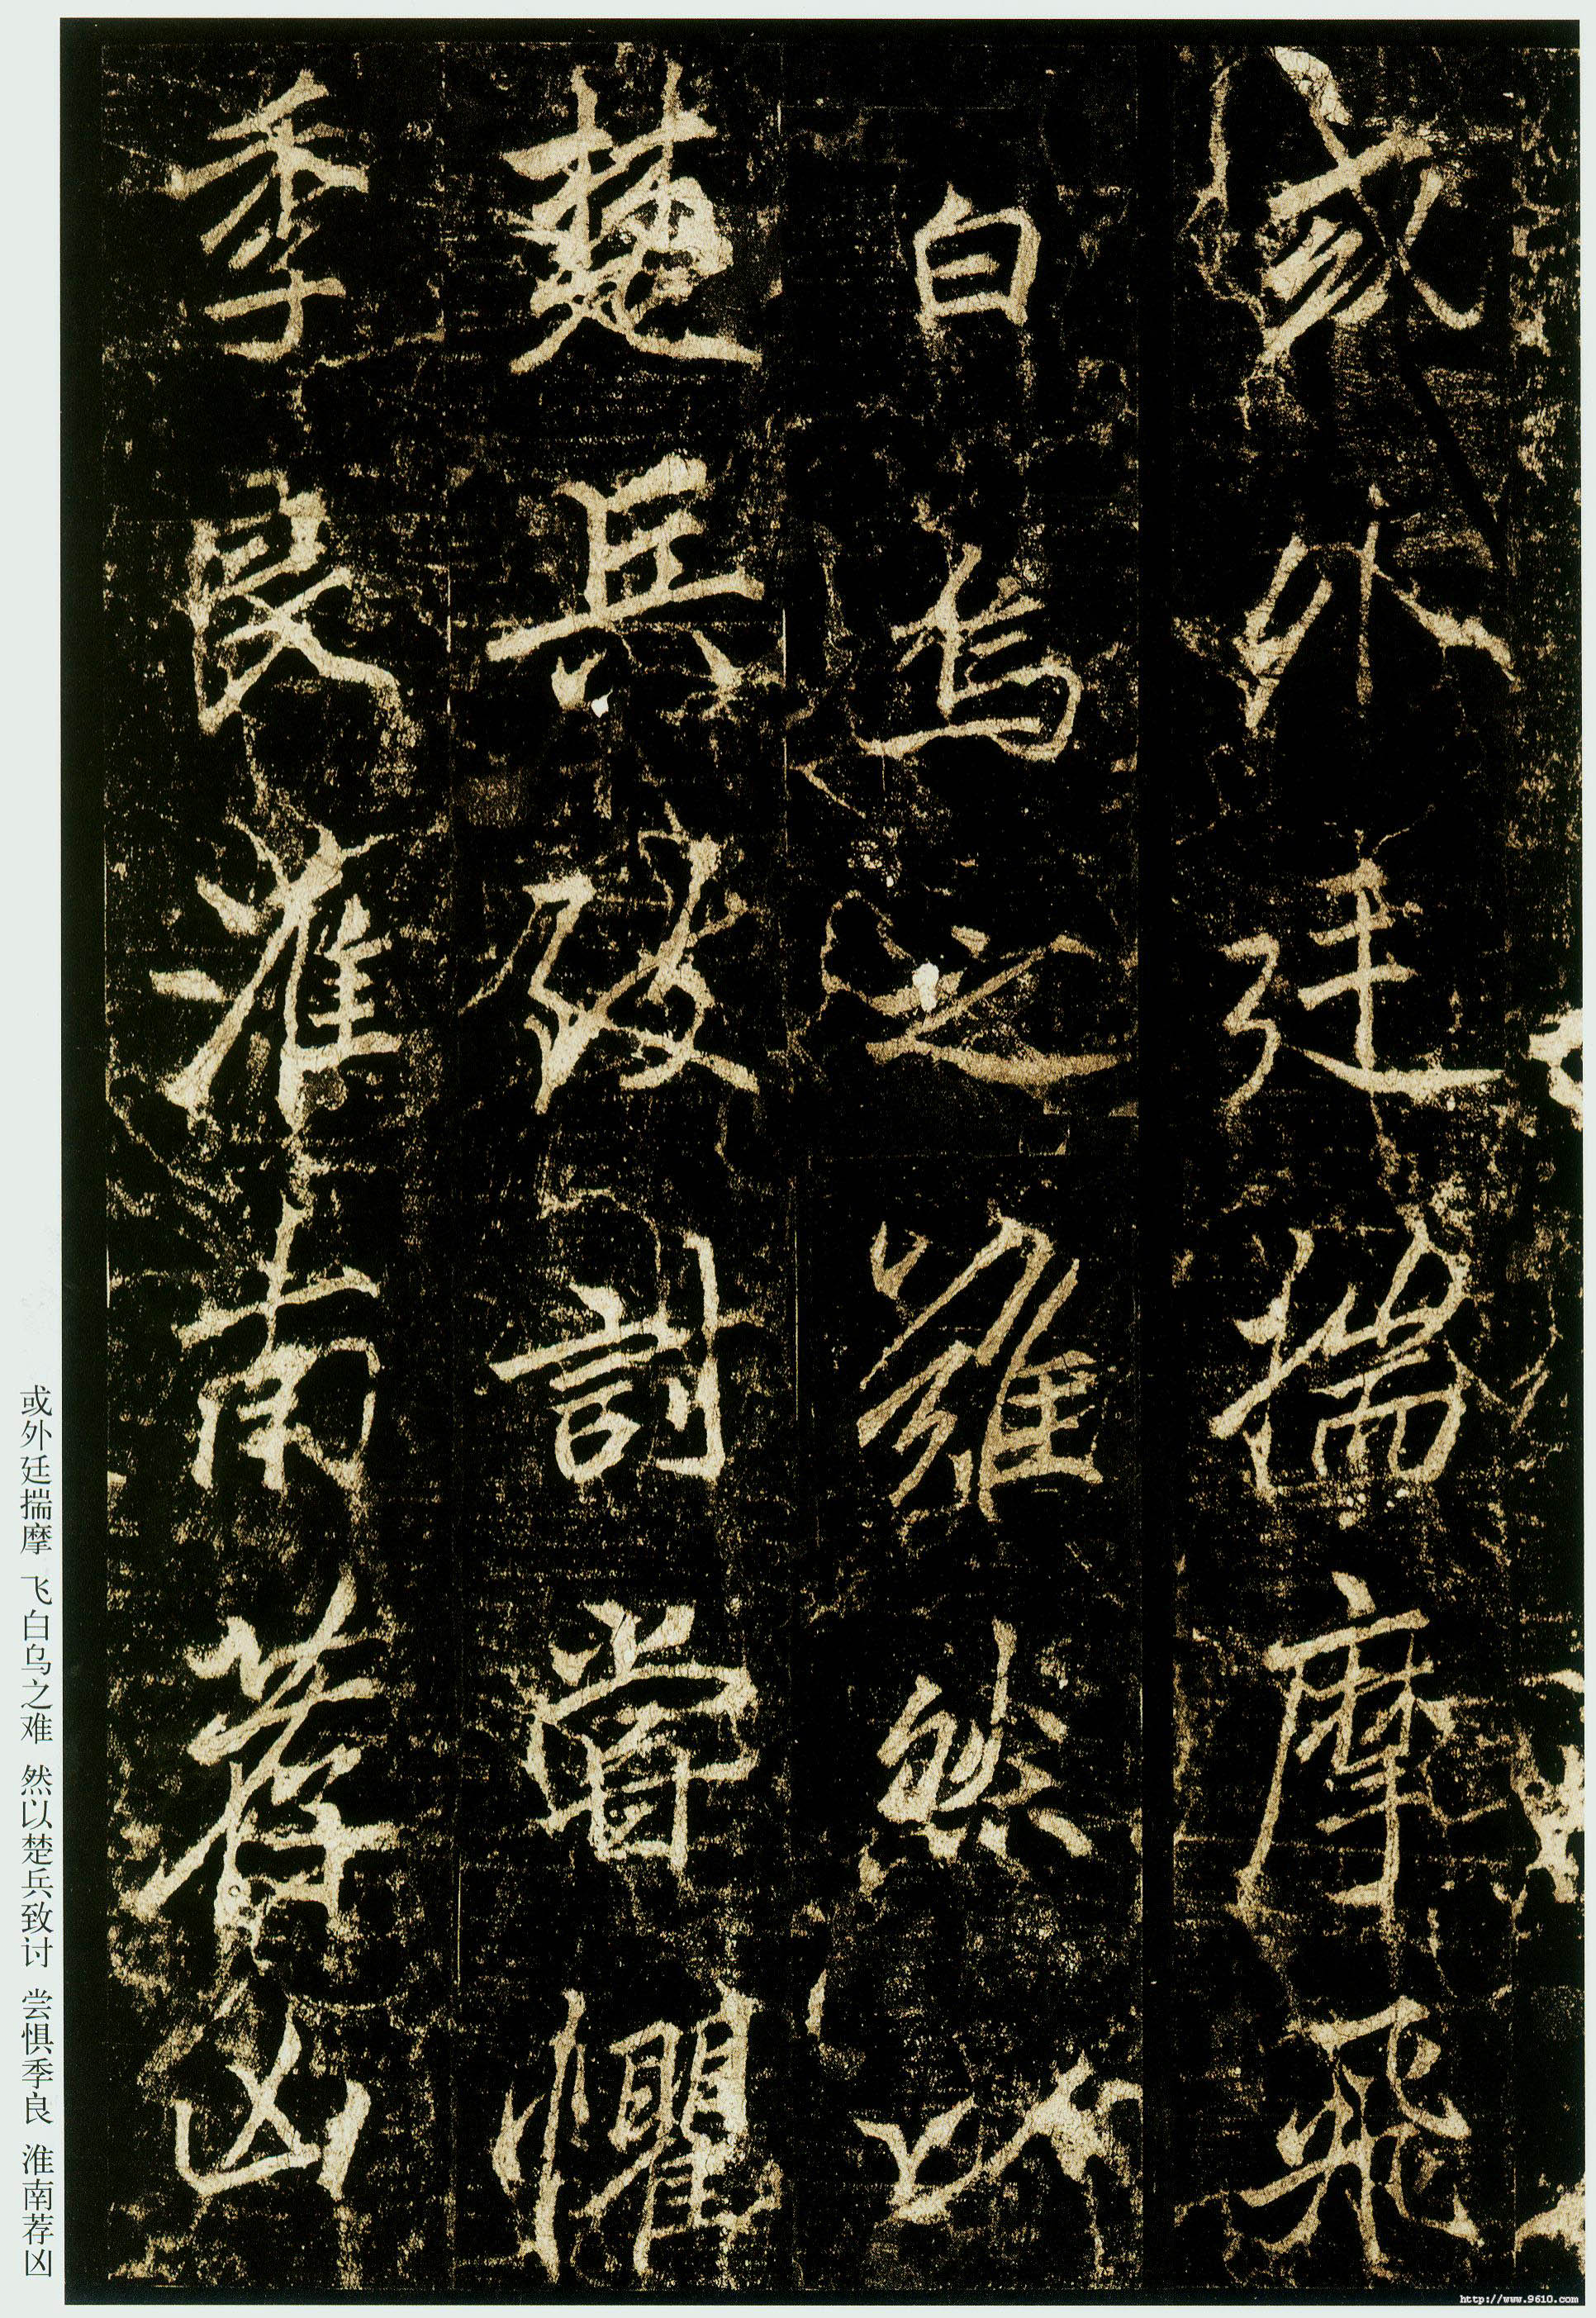 或外廷揣摩飛
白烏之難然以
楚兵致討嘗懼
季良淮南荐凶
或外廷揣摩 飞白乌之难 然以楚兵致讨 尝惧季良 淮南荐凶
http://www.9610.com